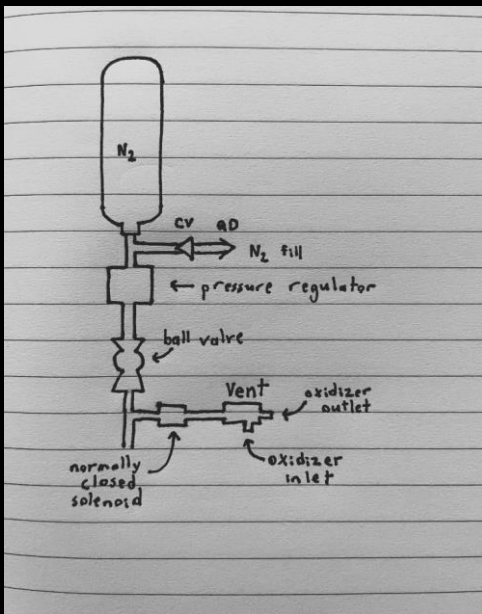 N₂
CV QD
N₂ fill
pressure regulator
ball valve
Vent
oxidizer
outlet
normally
closed
solenoid
oxidizer
inlet